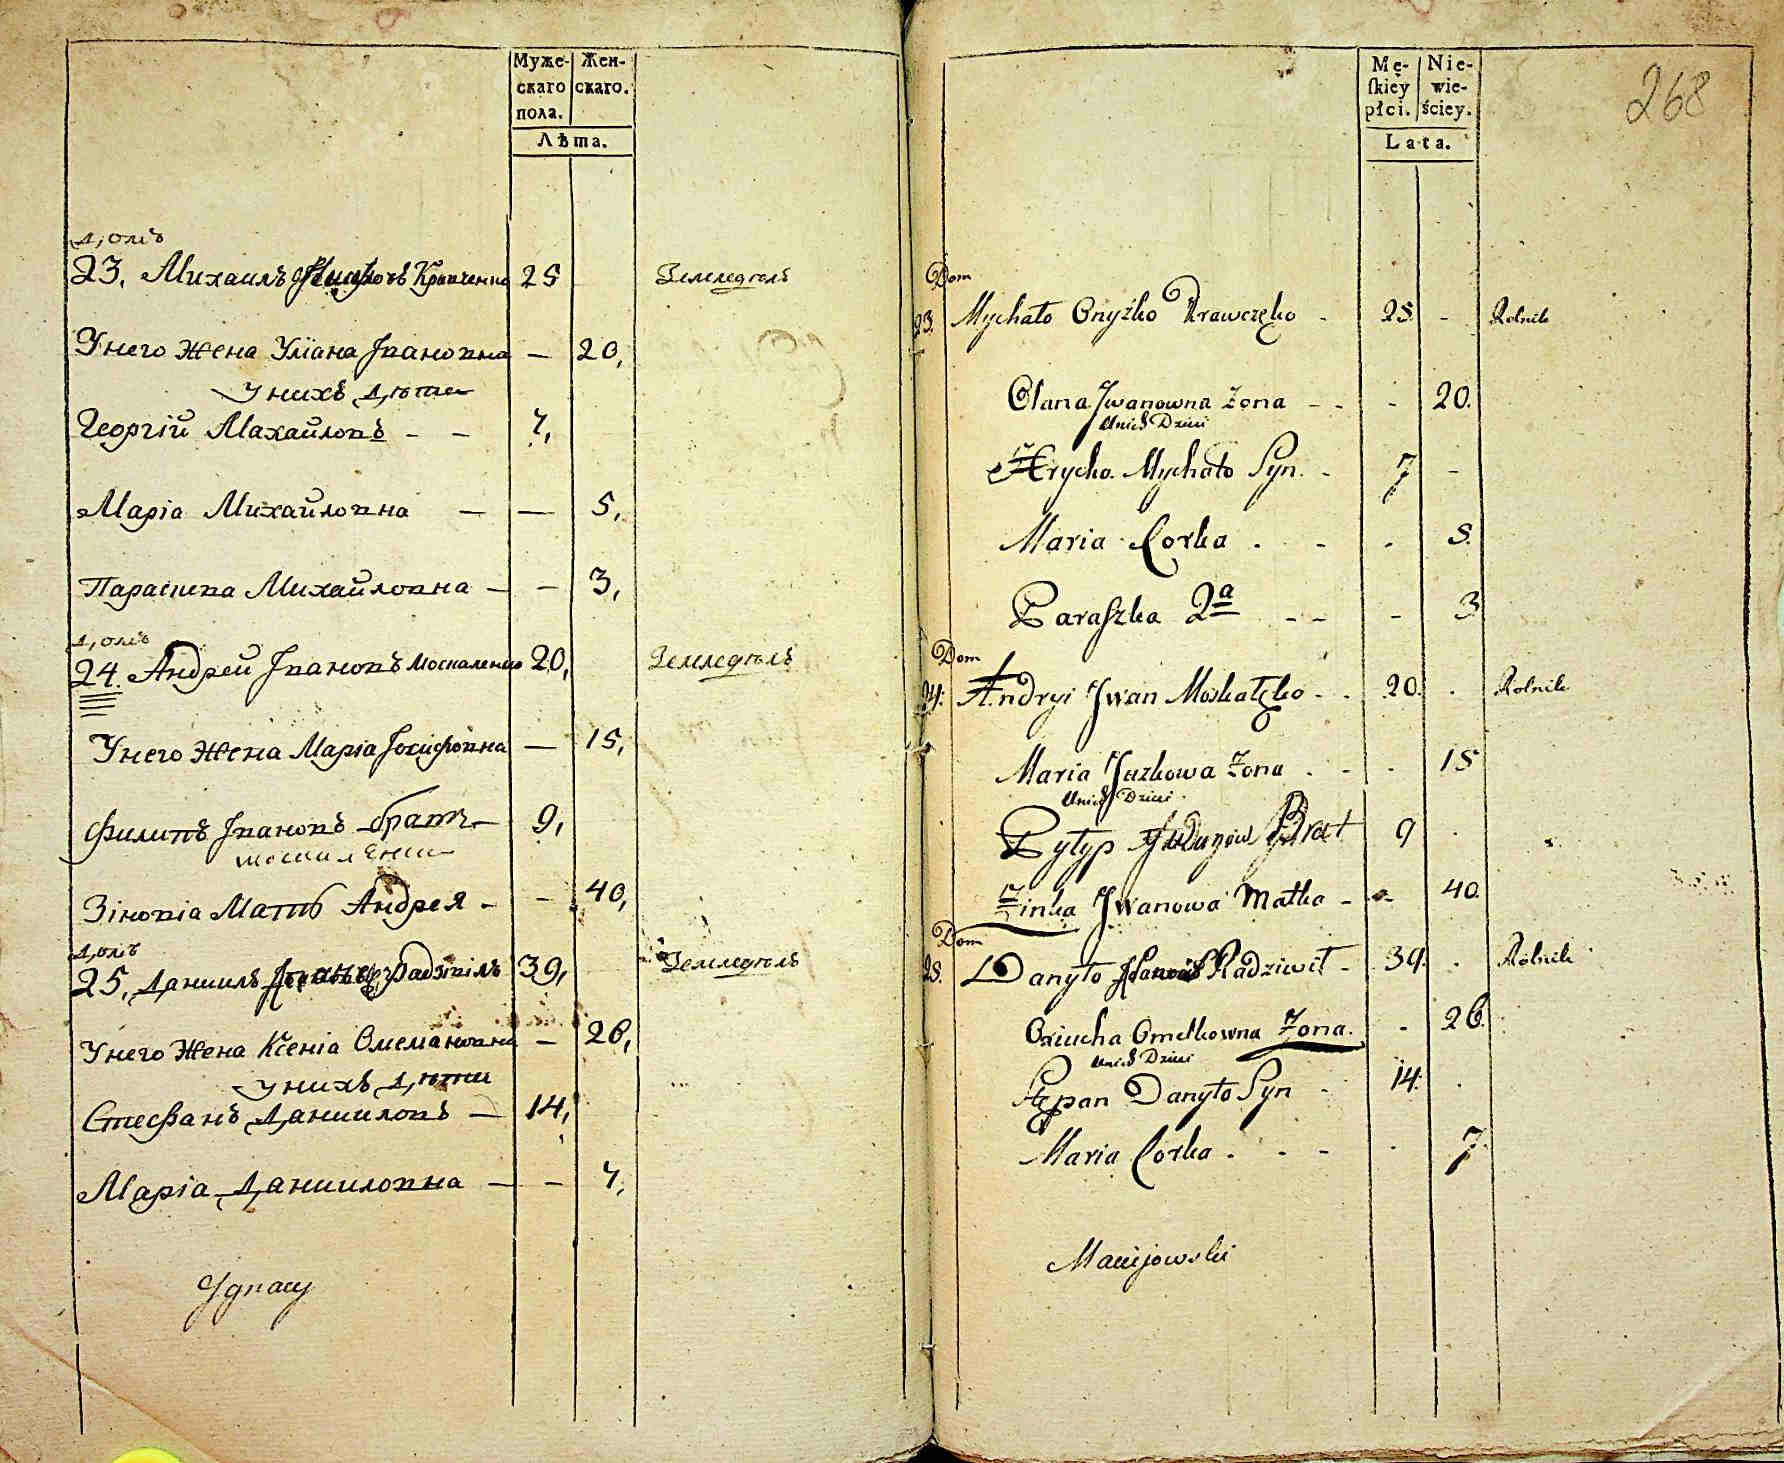 Муже-
скаго
пола.
Жен-
скаго.
Лѣта.
Домъ
23. Михаилъ Кравченко 25 Земледѣлъ
У него жена Уліана Івановна — 20,
У нихъ дѣти
Георгій Махайловъ — — 7,
Марія Михайловна — — 5,
Параскева Михайловна — — 3,
Домъ
24. Андрей Івановъ Москаленко 20, Земледѣлъ
У него жена Марія Іосифовна — 15,
Филипъ Івановъ братъ — 9,
Зіновія Мать Андрея - - 40,
Домъ
25, Даниилъ Радзивілъ 39, Земледѣлъ
У него жена Ксенія Омеляновна — 26,
У нихъ дѣти
Стефанъ Данииловъ — 14,
Марія Данииловна — — 7,
Ygnacy
268
Mę-
ſkiey
płci.
Nie-
wie-
ściey.
Lata.
Dom
23. Mychało Onyżko Krawczęko - 25 - Rolnik
Olana Jwanowna Żona - - - 20.
Unich Dzieci
Hrycko Mychało Syn. - 7 -
Maria Corka . - - 5.
Paraszka 2a - - - 3
Dom
24. Andryi Jwan Moskalęko - . 20. . Rolnik
Maria Juzkowa Żona . - - 15
Unich Dzieci
Pylyp Brat 9 .
Zinka Jwanowa Matka - - 40.
Dom
25. Danyło Radziwił - 39. . Rolnik
Oxiucha Omelkowna Żona. - 26.
Unich Dzieci
Stępan Danyło Syn - 14. .
Maria Corka . - - - 7.
Maciejowski